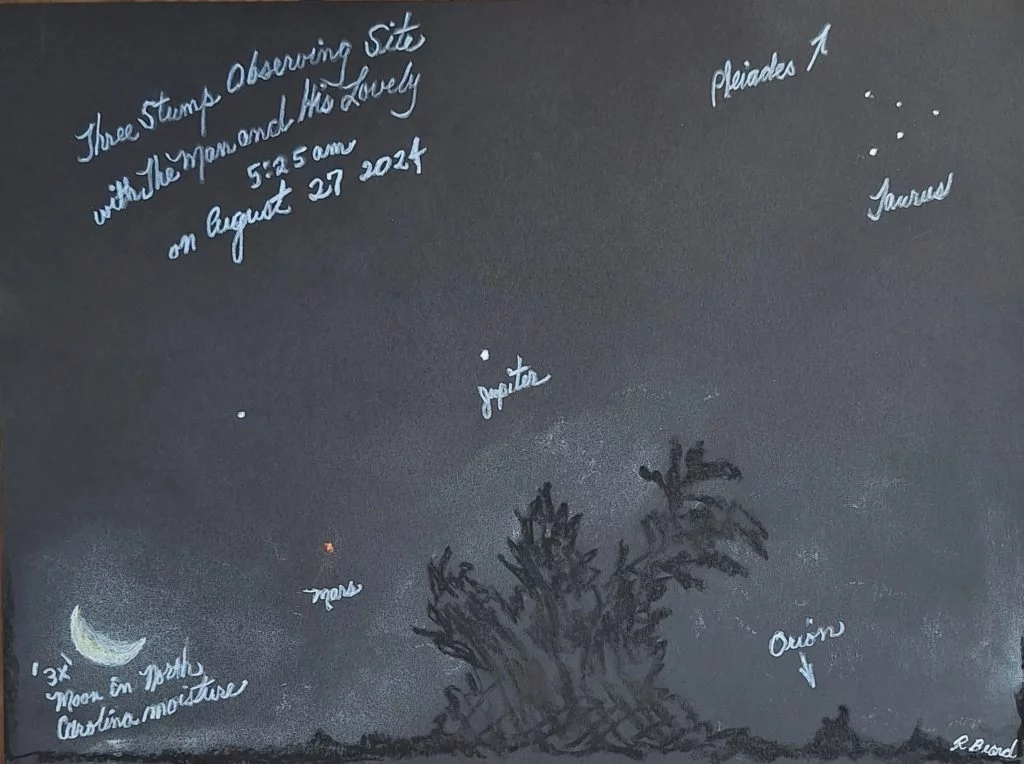 Three Stump Observing Site
with The Man and His Lovely
5:25 am
on August 27 2024
Pleiades
Taurus
Jupiter
Mars
Orion
"3X"
Moon in North
Carolina moisture
R Beard